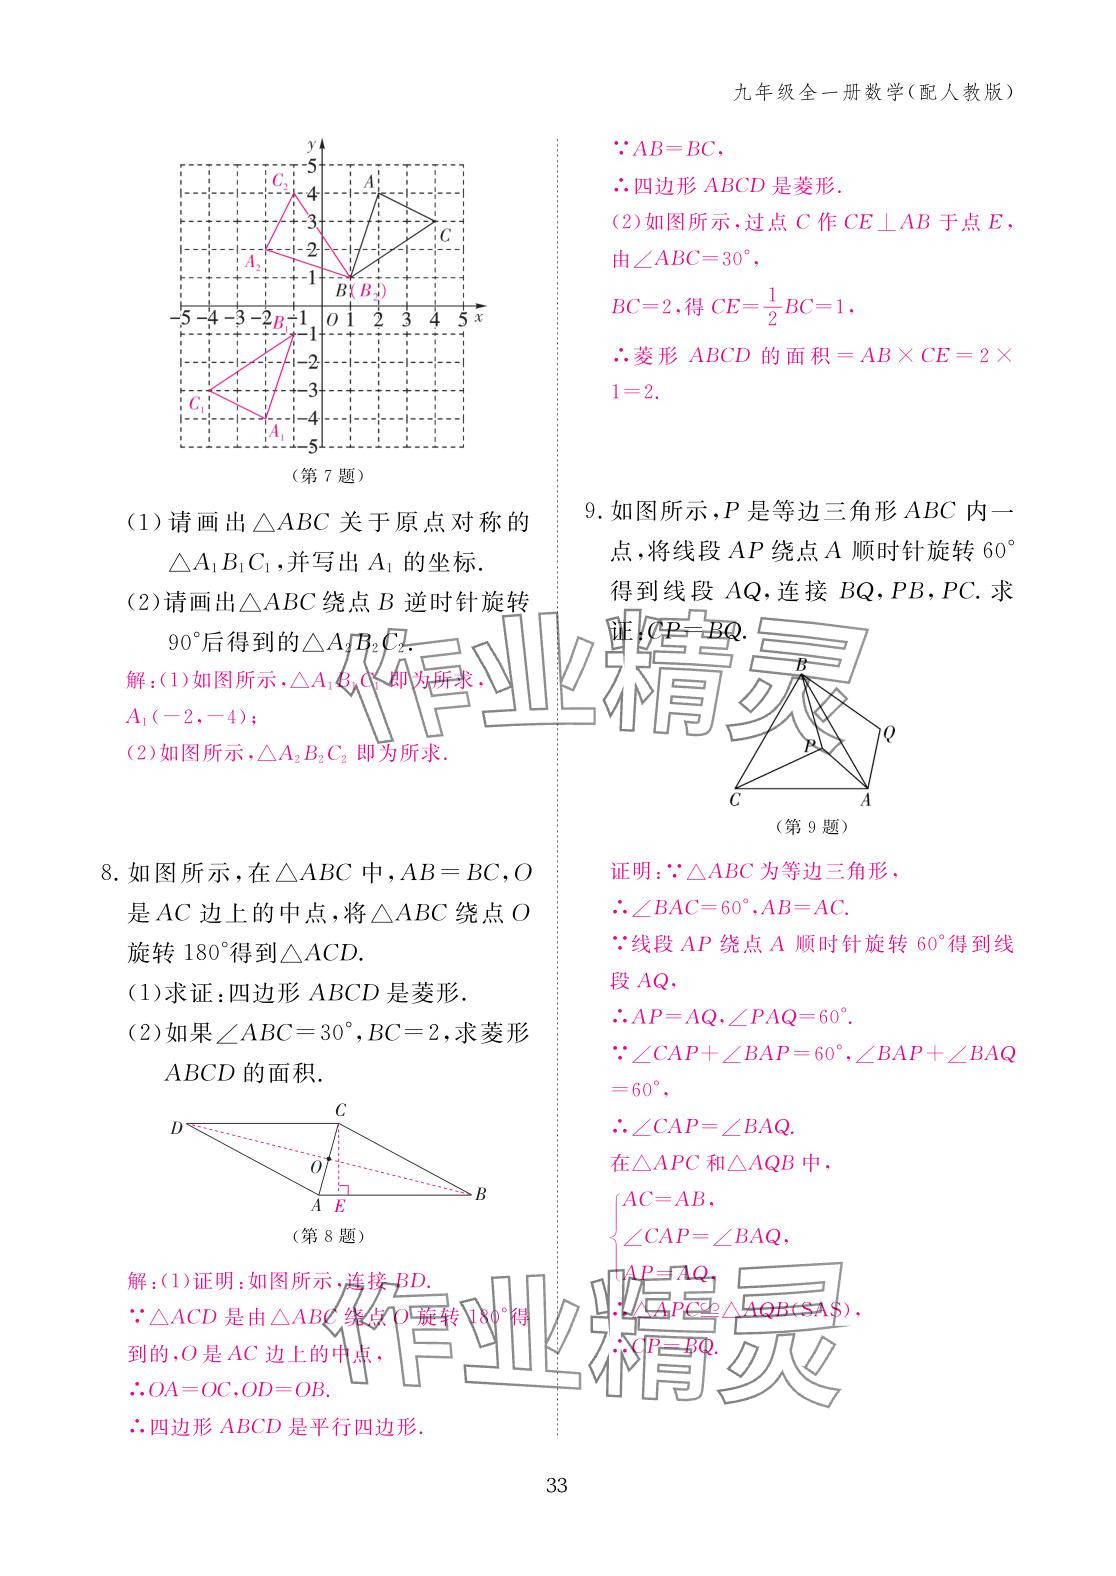 九年级全一册数学(配人教版)
y
5
4
3
2
1
-5 -4 -3 -2 -1 O 1 2 3 4 5 x
-1
-2
-3
-4
-5
A
B(B₂)
C
C₂
A₂
B₁
C₁
A₁
(第 7 题)
(1)请画出△ABC 关于原点对称的
△A₁B₁C₁,并写出 A₁ 的坐标.
(2)请画出△ABC 绕点 B 逆时针旋转
90°后得到的△A₂B₂C₂.
解:(1)如图所示,△A₁B₁C₁ 即为所求,
A₁(-2,-4);
(2)如图所示,△A₂B₂C₂ 即为所求.
8. 如图所示,在△ABC 中,AB=BC,O
是 AC 边上的中点,将△ABC 绕点 O
旋转 180°得到△ACD.
(1)求证:四边形 ABCD 是菱形.
(2)如果∠ABC=30°,BC=2,求菱形
ABCD 的面积.
D
C
O
A
E
B
(第 8 题)
解:(1)证明:如图所示,连接 BD.
∵△ACD 是由△ABC 绕点 O 旋转 180°得
到的,O 是 AC 边上的中点,
∴OA=OC,OD=OB.
∴四边形 ABCD 是平行四边形.
∵AB=BC,
∴四边形 ABCD 是菱形.
(2)如图所示,过点 C 作 CE⊥AB 于点 E,
由∠ABC=30°,
BC=2,得 CE=1/2BC=1,
∴菱形 ABCD 的面积=AB×CE=2×
1=2.
9. 如图所示,P 是等边三角形 ABC 内一
点,将线段 AP 绕点 A 顺时针旋转 60°
得到线段 AQ,连接 BQ,PB,PC. 求
证:CP=BQ.
B
Q
P
C
A
(第 9 题)
证明:∵△ABC 为等边三角形,
∴∠BAC=60°,AB=AC.
∵线段 AP 绕点 A 顺时针旋转 60°得到线
段 AQ,
∴AP=AQ,∠PAQ=60°.
∵∠CAP+∠BAP=60°,∠BAP+∠BAQ
=60°,
∴∠CAP=∠BAQ.
在△APC 和△AQB 中,
AC=AB,
∠CAP=∠BAQ,
AP=AQ,
∴△APC≌△AQB(SAS),
∴CP=BQ.
作业精灵
作业精灵
33